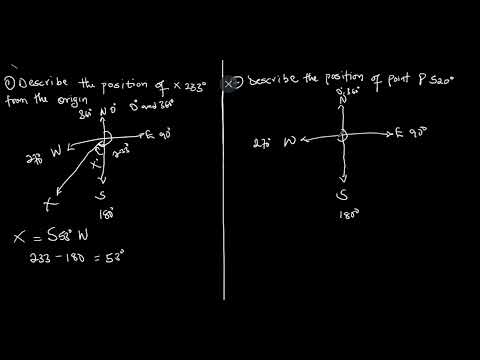 ① Describe the position of X 233°
from the origin
36° N 0° 0° and 36°
270° W E 90°
X° 233
X S
180°
X = S53° W
233 - 180 = 53°
X Describe the position of point P 520°
0°, 36°
N
270° W E 90°
S
180°